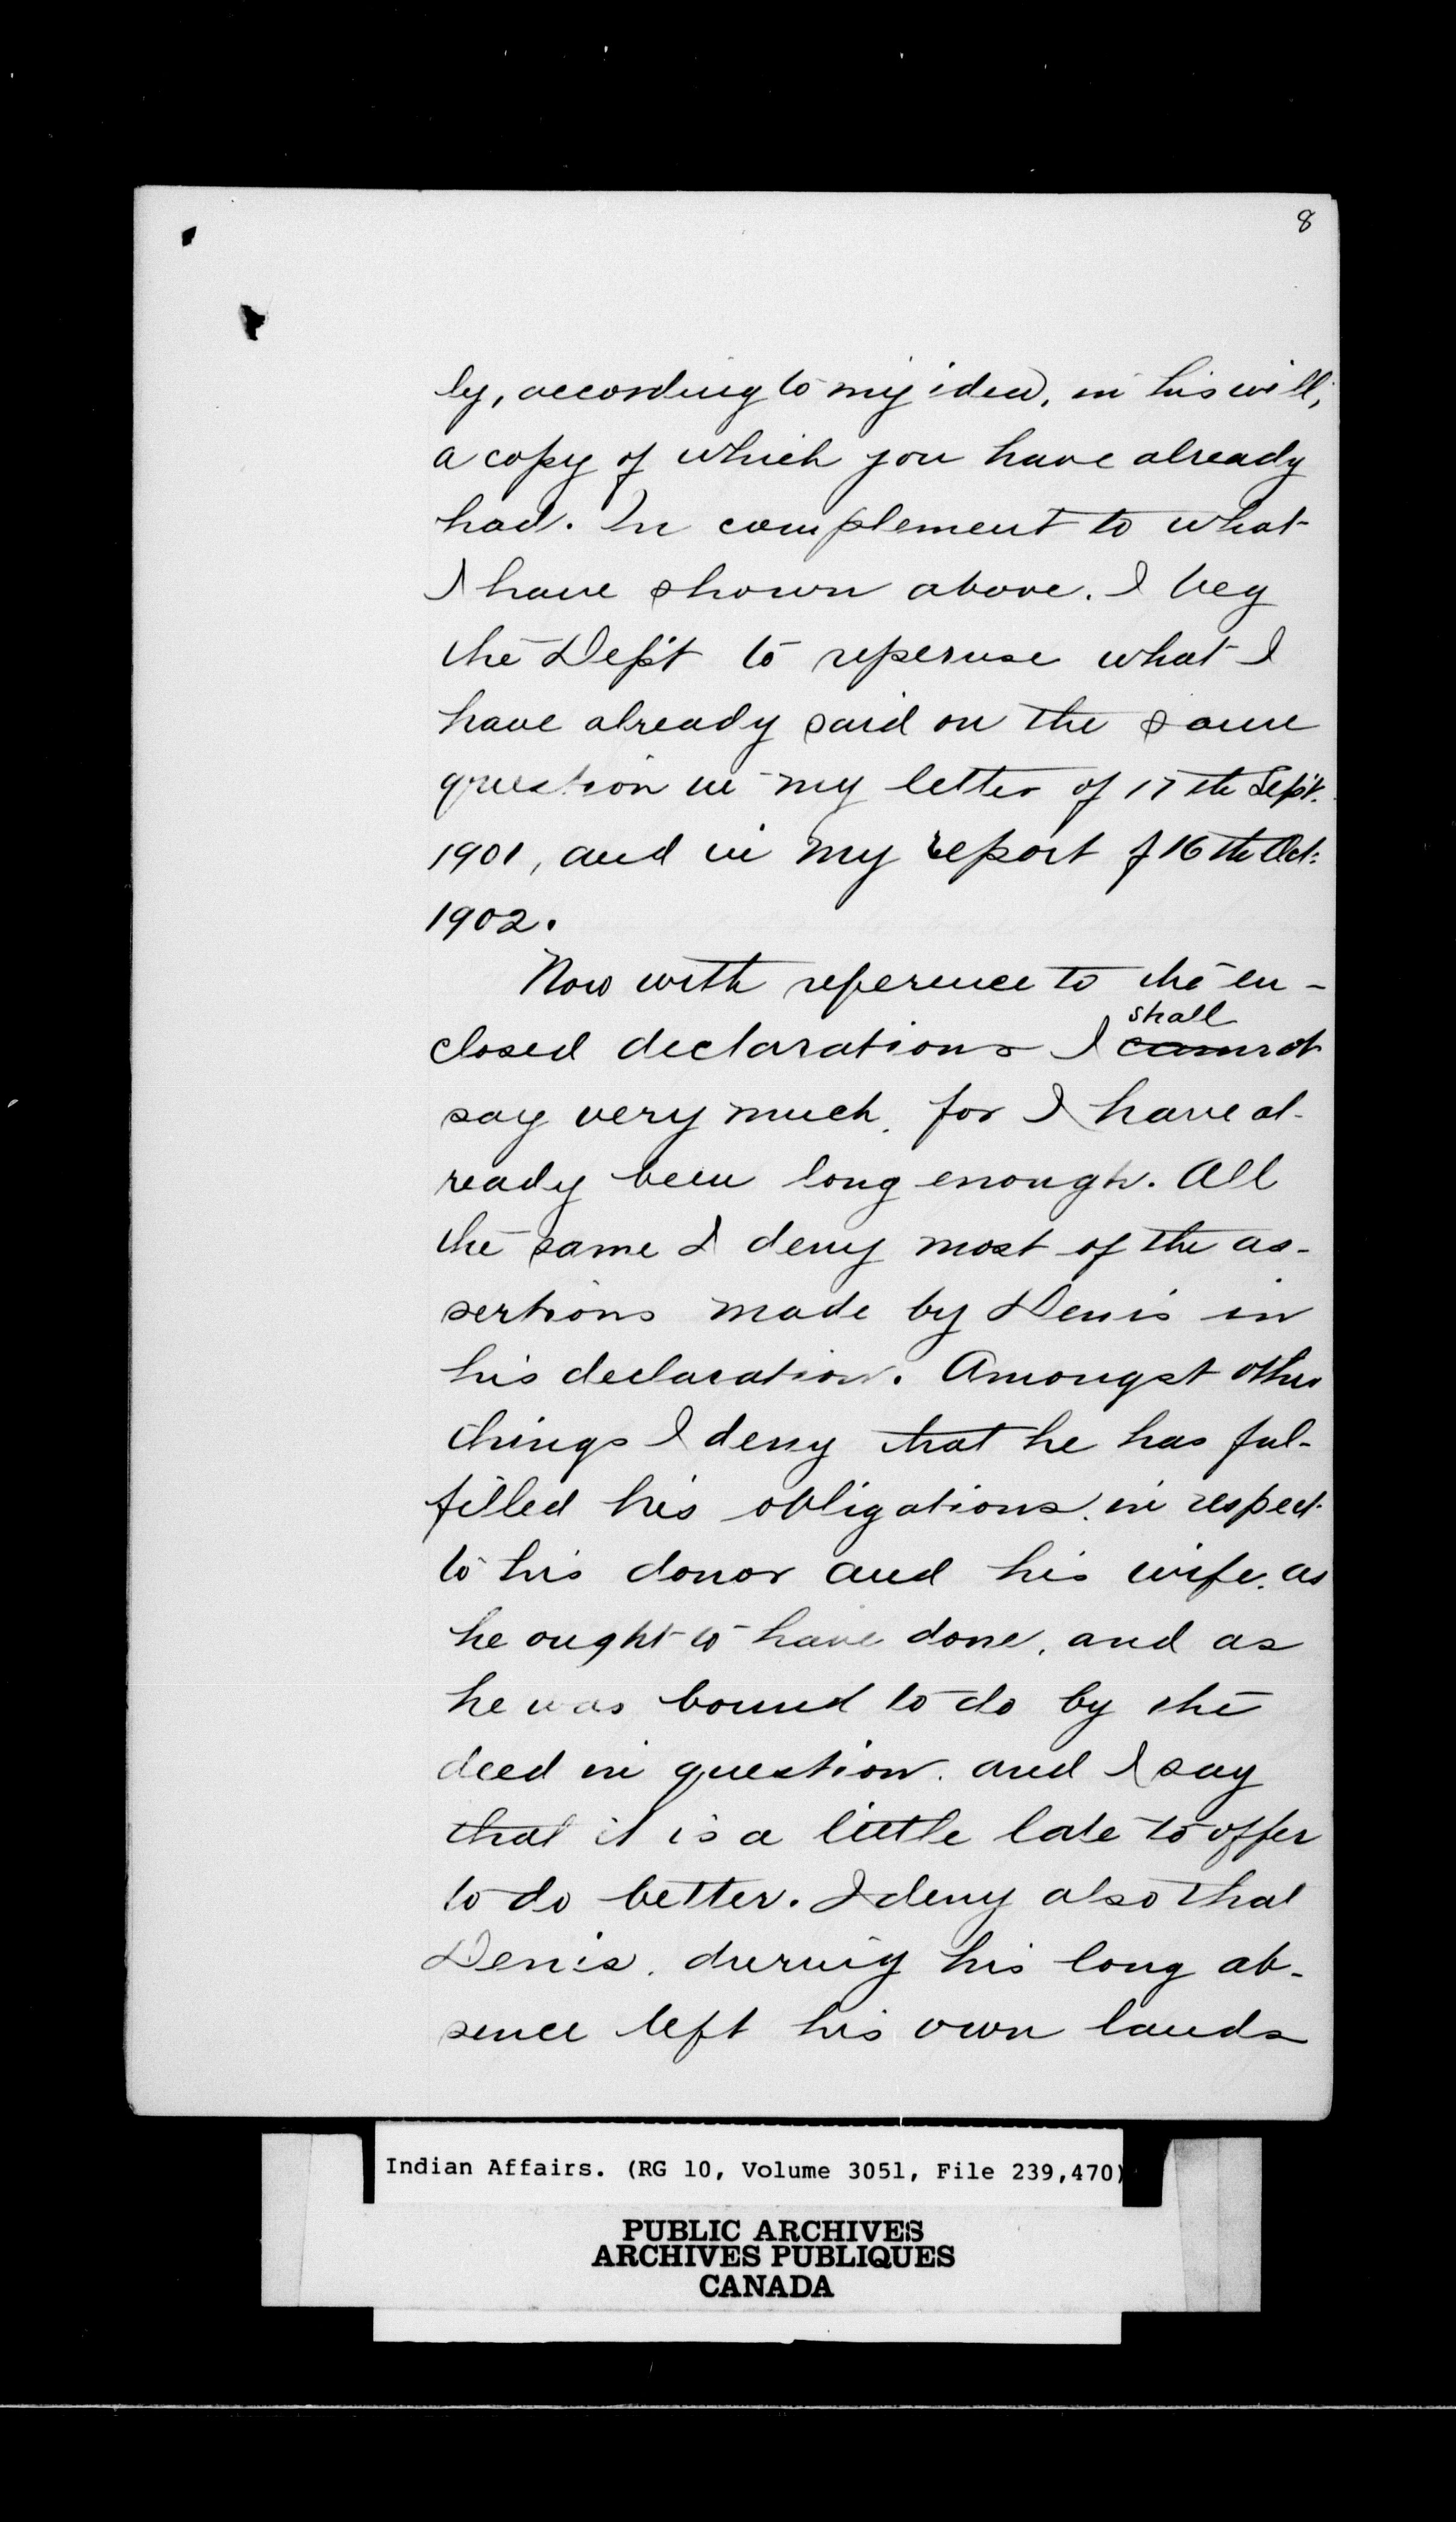 8
ly, according to my idea, in his will,
a copy of which you have already
had. In complement to what
I have shown above. I beg
the Dep't to reperuse what I
have already said on the same
question in my letter of 17th Sept.
1901, and in my report of 16th Oct:
1902.
Now with reference to the en-
shall
closed declarations I cannot
say very much, for I have al-
ready been long enough. All
the same I deny most of the as-
sertions made by Denis in
his declaration. Amongst other
things I deny that he has ful-
filled his obligations, in respect
to his donor and his wife, as
he ought to have done, and as
he was bound to do by the
deed in question, and I say
that it is a little late to offer
to do better. I deny also that
Denis, during his long ab-
sence left his own lands
Indian Affairs. (RG 10, Volume 3051, File 239,470)
PUBLIC ARCHIVES
ARCHIVES PUBLIQUES
CANADA